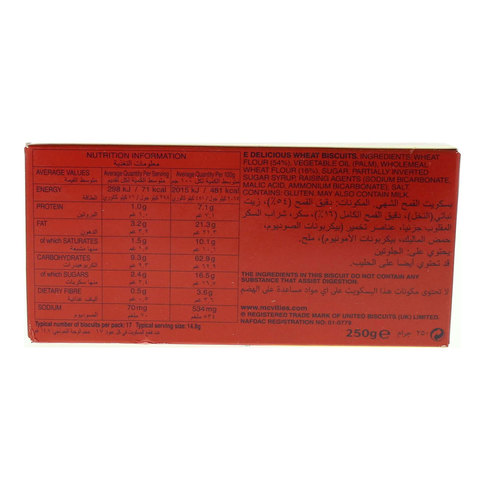 NUTRITION INFORMATION
معلومات التغذية
AVERAGE VALUES Average Quantity Per Serving Average Quantity Per 100g
ENERGY 298 kJ / 71 kcal 2015 kJ / 481 kcal
الطاقة
PROTEIN 1.0g 7.1g
البروتين
FAT 3.2g 21.3g
الدهون
of which SATURATES 1.5g 10.1g
منها مشبعة
CARBOHYDRATES 9.3g 62.8g
الكربوهيدرات
of which SUGARS 2.4g 16.5g
منها سكريات
DIETARY FIBRE 0.5g 3.6g
الياف غذائية
SODIUM 79mg 534mg
الصوديوم
Typical number of biscuits per pack: 17 Typical serving size: 14.8g
E DELICIOUS WHEAT BISCUITS. INGREDIENTS: WHEAT
FLOUR (54%), VEGETABLE OIL (PALM), WHOLEMEAL
WHEAT FLOUR (16%), SUGAR, PARTIALLY INVERTED
SUGAR SYRUP, RAISING AGENTS (SODIUM BICARBONATE,
MALIC ACID, AMMONIUM BICARBONATE), SALT.
CONTAINS: GLUTEN. MAY ALSO CONTAIN MILK.
بسكويت القمح الشهي. المكونات: دقيق القمح (٥٤٪)، زيت
نباتي (النخيل)، دقيق القمح الكامل (١٦٪)، سكر، شراب السكر
المقلوب جزئيا، عناصر تخمير (بيكربونات الصوديوم،
حمض الماليك، بيكربونات الأمونيوم)، ملح.
يحتوي على: الجلوتين.
قد تحتوي أيضا على الحليب.
THE INGREDIENTS IN THIS BISCUIT DO NOT CONTAIN ANY
SUBSTANCE THAT ASSIST DIGESTION.
لا تحتوي مكونات هذا البسكويت على اي مواد مساعدة على الهضم
www.mcvities.com
® REGISTERED TRADE MARK OF UNITED BISCUITS (UK) LIMITED.
NAFDAC REGISTRATION NO. 01-0776
250g e ٢٥٠ جرام